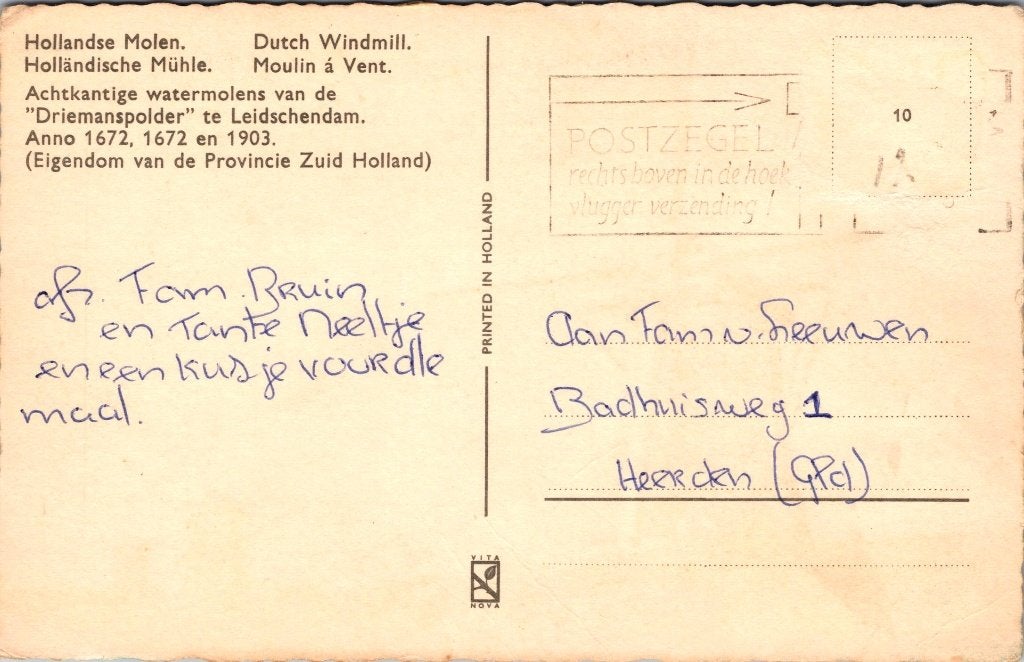 Hollandse Molen. Dutch Windmill.
Holländische Mühle. Moulin á Vent.
Achtkantige watermolens van de
"Driemanspolder" te Leidschendam.
Anno 1672, 1672 en 1903.
(Eigendom van de Provincie Zuid Holland)
afz. Fam. Bruin
en Tante Neeltje
en een kusje voor dle
maal.
PRINTED IN HOLLAND
VITA
NOVA
POSTZEGEL
rechts boven in de hoek
vlugger verzending!
10
Aan Fam v. Leeuwen
Badhuisweg 1
Heerden (Gld)